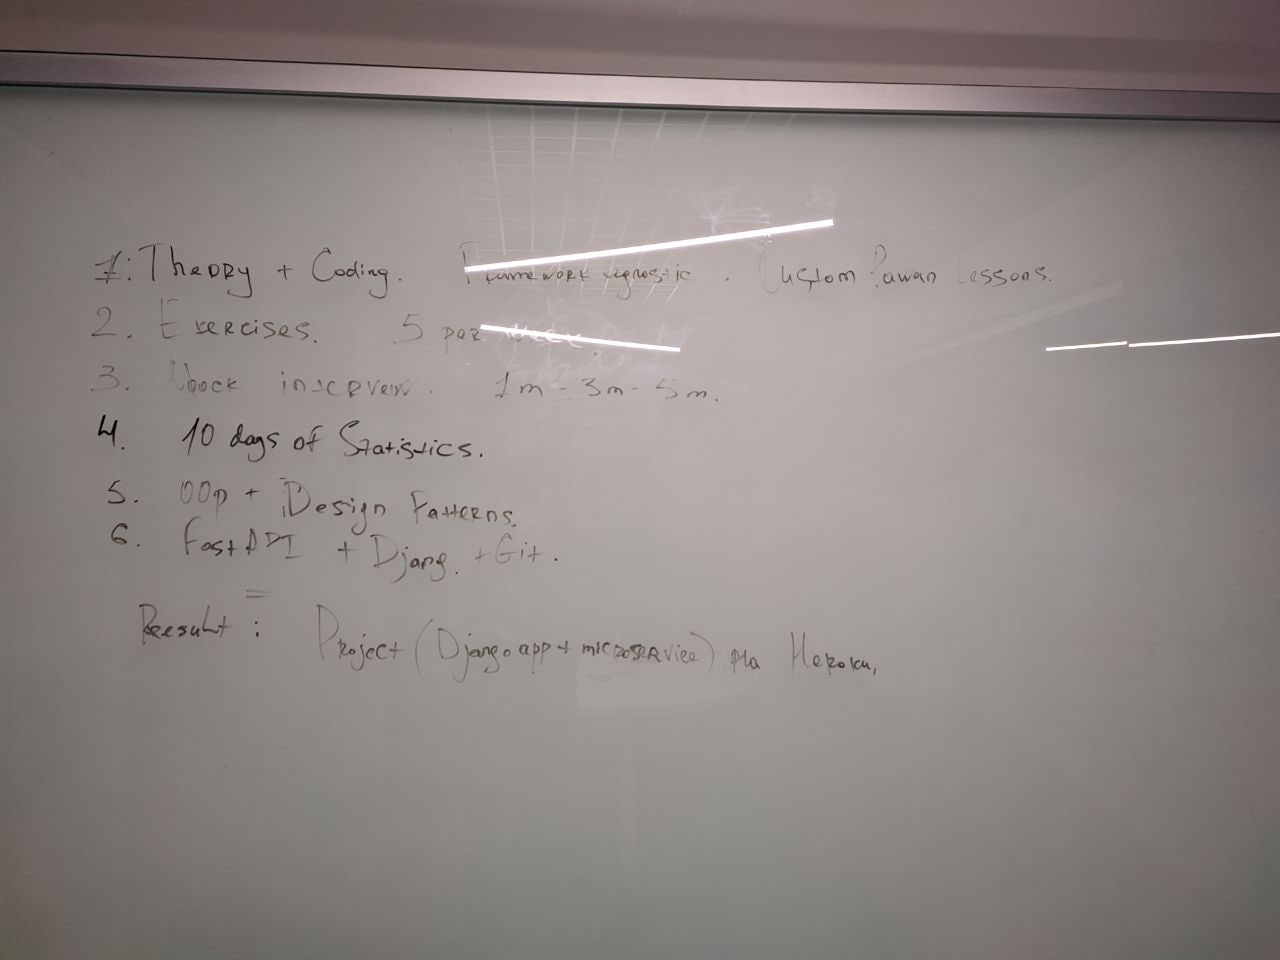 1: Theory + Coding. Framework agnostic. Custom Pawan Lessons.
2. Exercises. 5 per week.
3. Mock interview. 1m - 3m - 5m.
4. 10 days of Statistics.
5. OOp + Design Patterns.
6. FastAPI + Djang. + Git.
Result: Project (Django app + microservice) на Heroku,